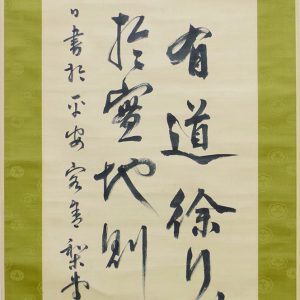 有道徐行
於實地則
日書於平安客舍梨堂